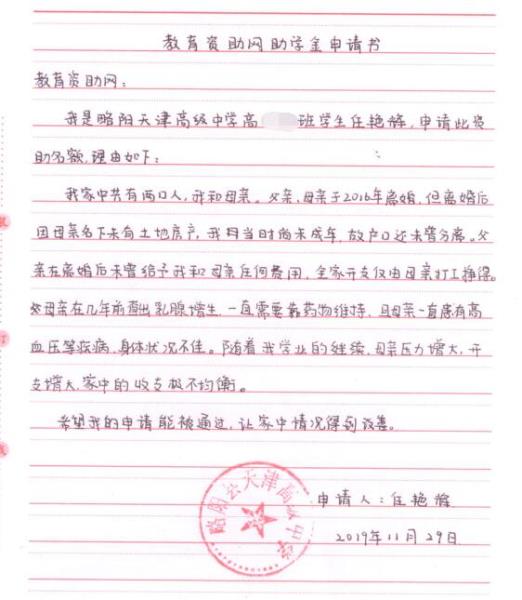 教育资助网助学金申请书
教育资助网：
我是略阳天津高级中学高 班学生任艳辉，申请此资
助名额，理由如下：
我家中共有两口人，我和母亲。父亲、母亲于2016年离婚，但离婚后
因母亲名下未有土地房产，我因当时尚未成年，故户口还未曾分离。父
亲在离婚后未曾给予我和母亲任何费用，全家开支仅由母亲打工挣得。
母亲在几年前查出乳腺增生，一直需要靠药物维持，且母亲一直患有高
血压等疾病，身体状况不佳。随着我学业的继续，母亲压力增大，开
支增大，家中的收支极不均衡。
希望我的申请能被通过，让家中情况得到改善。
申请人：任艳辉
2019年11月29日
略阳县天津高级中学